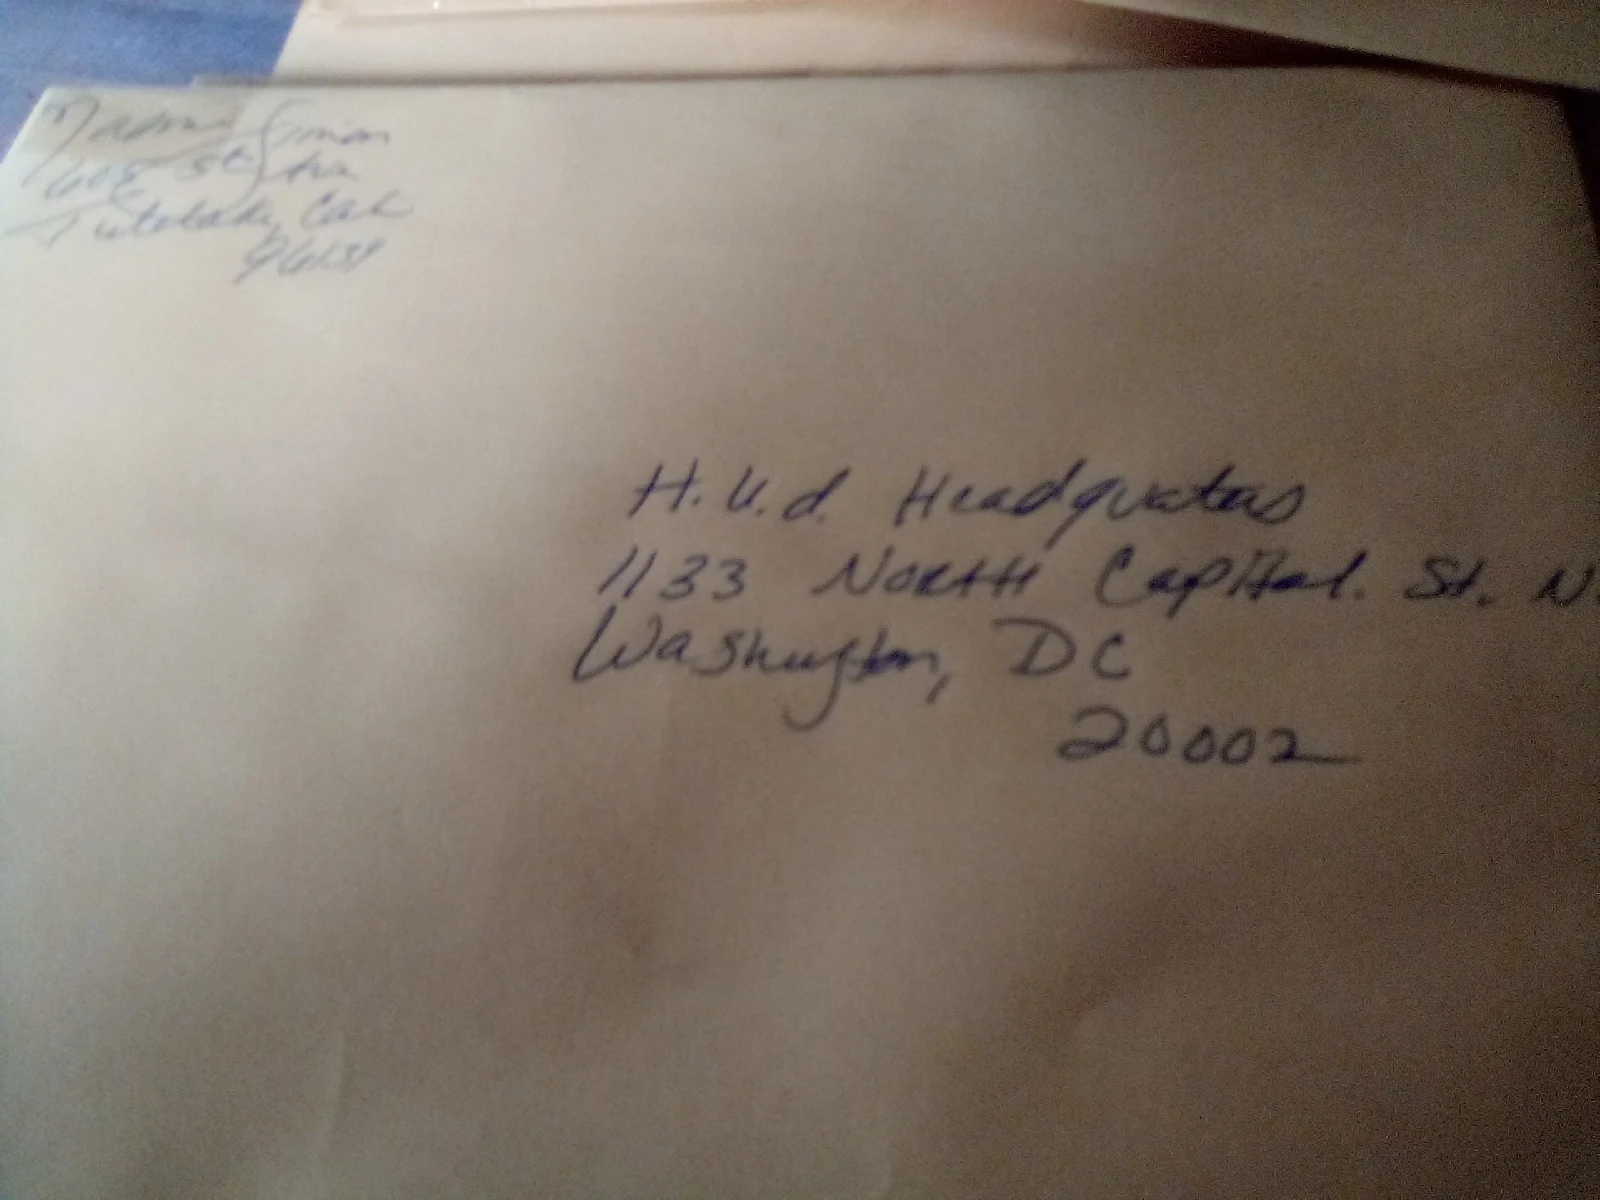 Naomi Simon
608 St.
Tulelake, Cal
96134
H.U.d. Headquaters
1133 North Capital. St. N
Washington, DC
20002